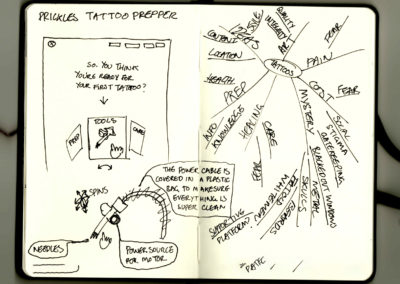 PRICKLES TATTOO PREPPER
SO. YOU THINK
YOU'RE READY FOR
YOUR FIRST TATTOO?
TOOLS
PREP
CARE
SPINS
THE POWER CABLE IS
COVERED IN A PLASTIC
BAG TO MAKE SURE
EVERYTHING IS
SUPER CLEAN
NEEDLES
POWER SOURCE
FOR MOTOR.
TATTOOS
IDEAS
SIZE
QUALITY
INTEGRITY
CONTENT
LOCATION
HEALTH
PREP
INFO
KNOWLEDGE
HEALING
CARE
FEAR
PAIN
FEAR
COST
FEAR
SOCIAL
STIGMA
GATEKEEPING
MYSTERY
BLACKED OUT WINDOWS
METAL
SKULLS
BEARDS
WHITE MEN
SUPPORTING